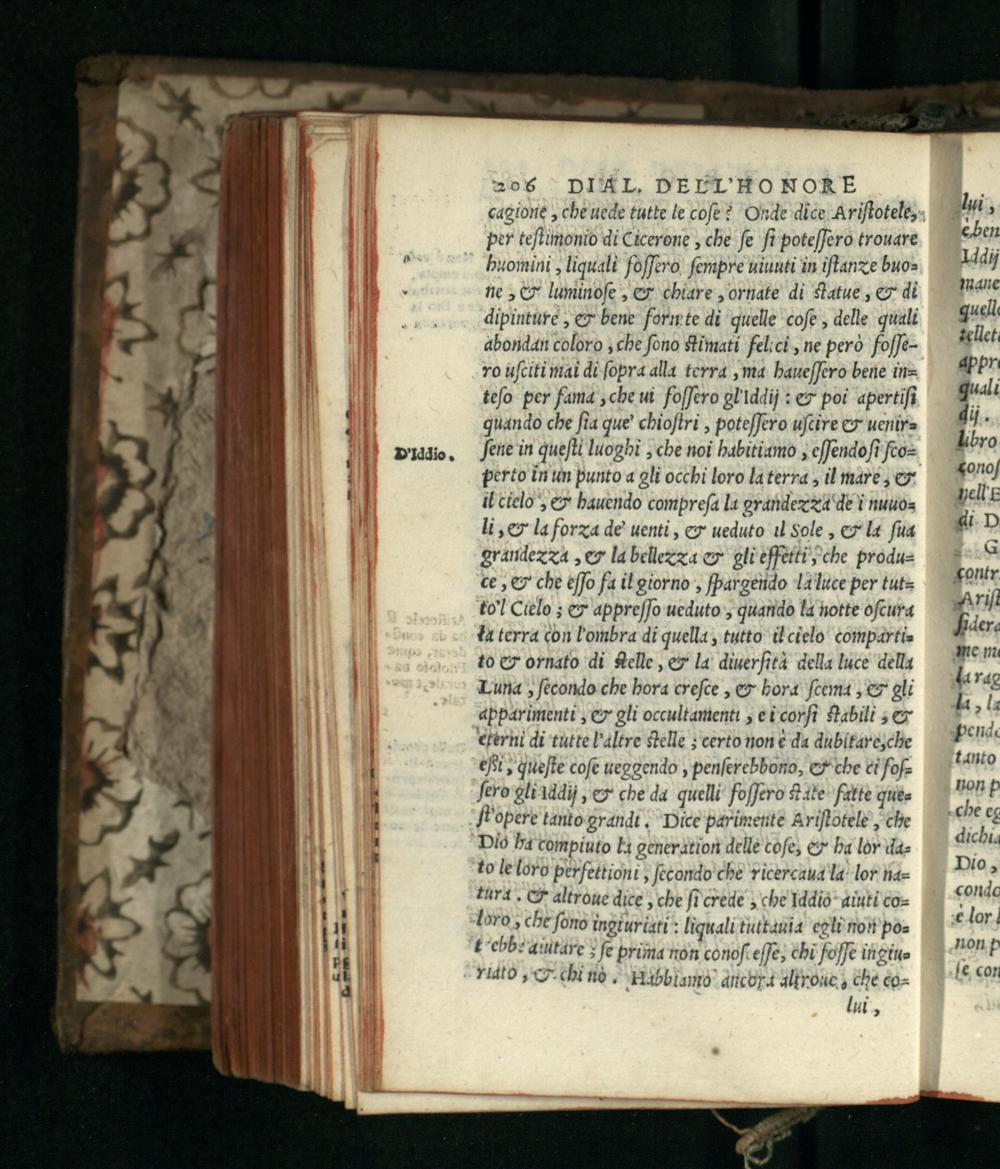 206 DIAL. DELL'HONORE
cagione, che uede tutte le cose? Onde dice Aristotele,
per testimonio di Cicerone, che se si potessero trouare
huomini, liquali fossero sempre uiuuti in istanze buo=
ne, & luminose, & chiare, ornate di statue, & di
dipinture, & bene fornite di quelle cose, delle quali
abondan coloro, che sono stimati felici, ne però fosse-
ro usciti mai di sopra alla terra, ma hauessero bene in=
teso per fama, che ui fossero gl'Iddij: & poi apertisi
quando che sia que' chiostri, potessero uscire & uenir=
D'Iddio.
sene in questi luoghi, che noi habitiamo, essendosi sco=
perto in un punto a gli occhi loro la terra, il mare, &
il cielo, & hauendo compresa la grandezza de i nuuo=
li, & la forza de' uenti, & ueduto il Sole, & la sua
grandezza, & la bellezza & gli effetti, che produ=
ce, & che esso fa il giorno, spargendo la luce per tut=
to'l Cielo; & appresso ueduto, quando la notte oscura
la terra con l'ombra di quella, tutto il cielo comparti=
to & ornato di stelle, & la diuersità della luce della
Luna, secondo che hora cresce, & hora scema, & gli
apparimenti, & gli occultamenti, e i corsi stabili, &
eterni di tutte l'altre stelle; certo non è da dubitare, che
essi, queste cose ueggendo, penserebbono, & che ci fos=
sero gli Iddij, & che da quelli fossero state fatte que=
st'opere tanto grandi. Dice parimente Aristotele, che
Dio ha compiuto la generation delle cose, & ha lor da=
to le loro perfettioni, secondo che ricercaua la lor na=
tura. & altroue dice, che si crede, che Iddio aiuti co=
loro, che sono ingiuriati: liquali tuttauia egli non po=
t'ebbe aiutare; se prima non conoscesse, chi fosse ingiu=
riato, & chi nò. Habbiamo ancora altroue, che co=
lui,
lui,
è ben
Iddij
mane
quello
tellet
appre
quali
dij.
libro
conos
nell'E
di D
G
contr
Arist
sidera
me me
la rag
la, la
pendo
tanto
non p
che eg
dichia
Dio,
condo
è lor
non p
se con